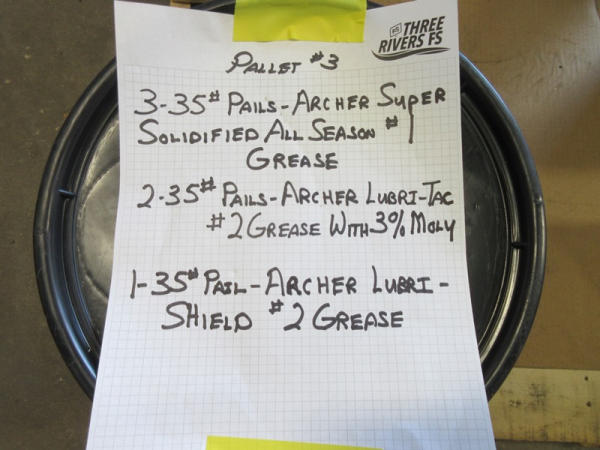 FS THREE
RIVERS FS
PALLET #3
3-35# PAILS-ARCHER SUPER
SOLIDIFIED ALL SEASON #1
GREASE
2-35# PAILS-ARCHER LUBRI-TAC
#2 GREASE WITH 3% MOLY
1-35# PAIL-ARCHER LUBRI-
SHIELD #2 GREASE